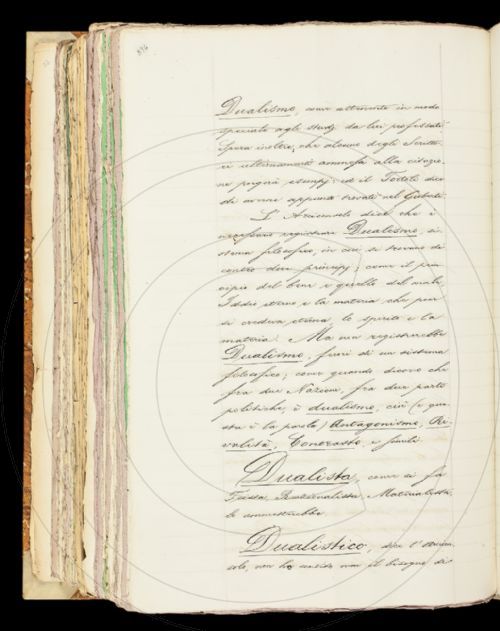 Dualismo, come attinente in modo
speciale agli studj da lui professati.
Spera inoltre, che alcuno degli Scritto-
ri ultimamente ammessi alla citazio-
ne porgerà esempj; ed il Tortoli dice
di averne appunto trovati nel Gioberti.
L'Arciconsolo dice che è
necessario registrare Dualismo, si-
stema filosofico, in cui si trovano di
contro due principj; come il prin-
cipio del bene e quello del male,
Iddio eterno e la materia che pur
si credeva eterna, lo spirito e la
materia. Ma non registrerebbe
Dualismo, fuori di un sistema
filosofico; come quando dicono che
fra due Nazioni, fra due parti
politiche, è dualismo, cioè (e que-
sta è la parola) Antagonismo, Ri-
valità, Contrasto, e simili.
Dualista, come si fa
Teista, Razionalista, Materialista,
lo ammetterebbe.
Dualistico, dice l'Arcicon-
solo, non ho uso nè il bisogno di